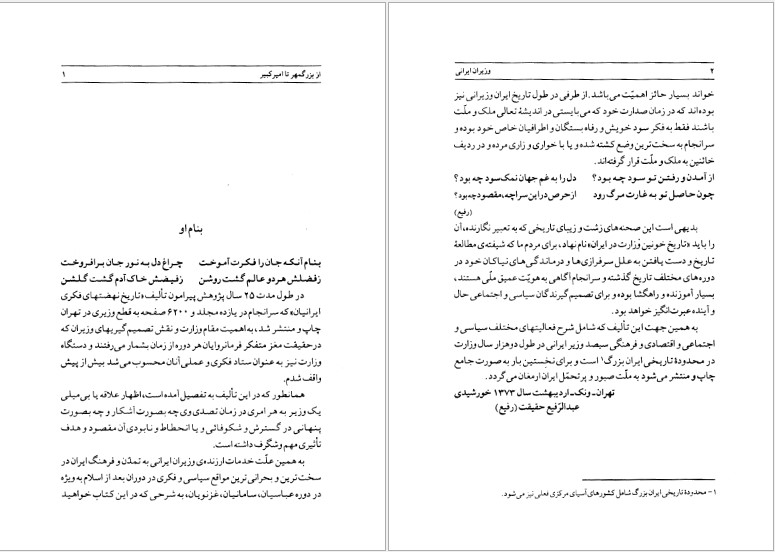 از بزرگمهر تا امیرکبیر ۱
بنام او
بنام آنکه جان را فکرت آموخت چراغ دل به نور جان برافروخت
ز فضلش هر دو عالم گشت روشن ز فیضش خاک آدم گشت گلشن
در طول مدت ۲۵ سال پژوهش پیرامون تألیف «تاریخ نهضتهای فکری
ایرانیان» که سرانجام در یازده مجلد و ۶۲۰۰ صفحه به قطع وزیری در تهران
چاپ و منتشر شد، به اهمیت مقام وزارت و نقش تصمیم گیریهای وزیران که
درحقیقت مغز متفکر فرمانروایان هر دوره از زمان بشمار می‌رفتند و دستگاه
وزارت نیز به عنوان ستاد فکری و عملی آنان محسوب می‌شد بیش از پیش
واقف شدم.
همانطور که در این تألیف به تفصیل آمده است، اظهار علاقه یا بی‌میلی
یک وزیر به هر امری در زمان تصدی وی چه بصورت آشکار و چه بصورت
پنهانی در گسترش و شکوفائی و یا انحطاط و نابودی آن مقصود و هدف
تأثیری مهم و شگرف داشته است.
به همین علّت خدمات ارزنده‌ی وزیران ایرانی به تمدّن و فرهنگ ایران در
سخت‌ترین و بحرانی ترین مواقع سیاسی و فکری در دوران بعد از اسلام به ویژه
در دوره عباسیان، سامانیان، غزنویان، به شرحی که در این کتاب خواهید
۲ وزیران ایرانی
خواند بسیار حائز اهمیّت می‌باشد. از طرفی در طول تاریخ ایران وزیرانی نیز
بوده‌اند که در زمان صدارت خود که می‌بایستی در اندیشهٔ تعالی ملک و ملّت
باشند فقط به فکر سود خویش و رفاه بستگان و اطرافیان خاص خود بوده و
سرانجام به سخت‌ترین وضع کشته شده و یا با خواری و زاری مرده و در ردیف
خائنین به ملک و ملّت قرار گرفته‌اند.
از آمدن و رفتن تو سود چه بود؟ دل را به غم جهان نمک‌سود چه بود؟
چون حاصل تو به غارت مرگ رود از حرص در این سراچه، مقصود چه بود؟
(رفیع)
بدیهی است این صحنه‌های زشت و زیبای تاریخی که به تعبیر نگارنده، آن
را باید «تاریخ خونین وُزارت در ایران» نام نهاد، برای مردم ما که شیفته‌ی مطالعهٔ
تاریخ و دست یافتن به علل سرفرازی‌ها و درماندگی‌های نیاکان خود در
دوره‌های مختلف تاریخ گذشته و سرانجام آگاهی به هویّت عمیق ملّی هستند،
بسیار آموزنده و راهگشا بوده و برای تصمیم گیرندگان سیاسی و اجتماعی حال
و آینده عبرت‌انگیز خواهد بود.
به همین جهت این تألیف که شامل شرح فعالیتهای مختلف سیاسی و
اجتماعی و اقتصادی و فرهنگی سیصد وزیر ایرانی در طول دو هزار سال وزارت
در محدودهٔ تاریخی ایران بزرگ۱ است و برای نخستین بار به صورت جامع
چاپ و منتشر می‌شود به ملّت صبور و پرتحمّل ایران ارمغان می‌گردد.
تهران ـ ونک ـ اردیبهشت سال ۱۳۷۳ خورشیدی
عبدالرّفیع حقیقت (رفیع)
۱- محدودهٔ تاریخی ایران بزرگ شامل کشورهای آسیای مرکزی فعلی نیز می‌شود.